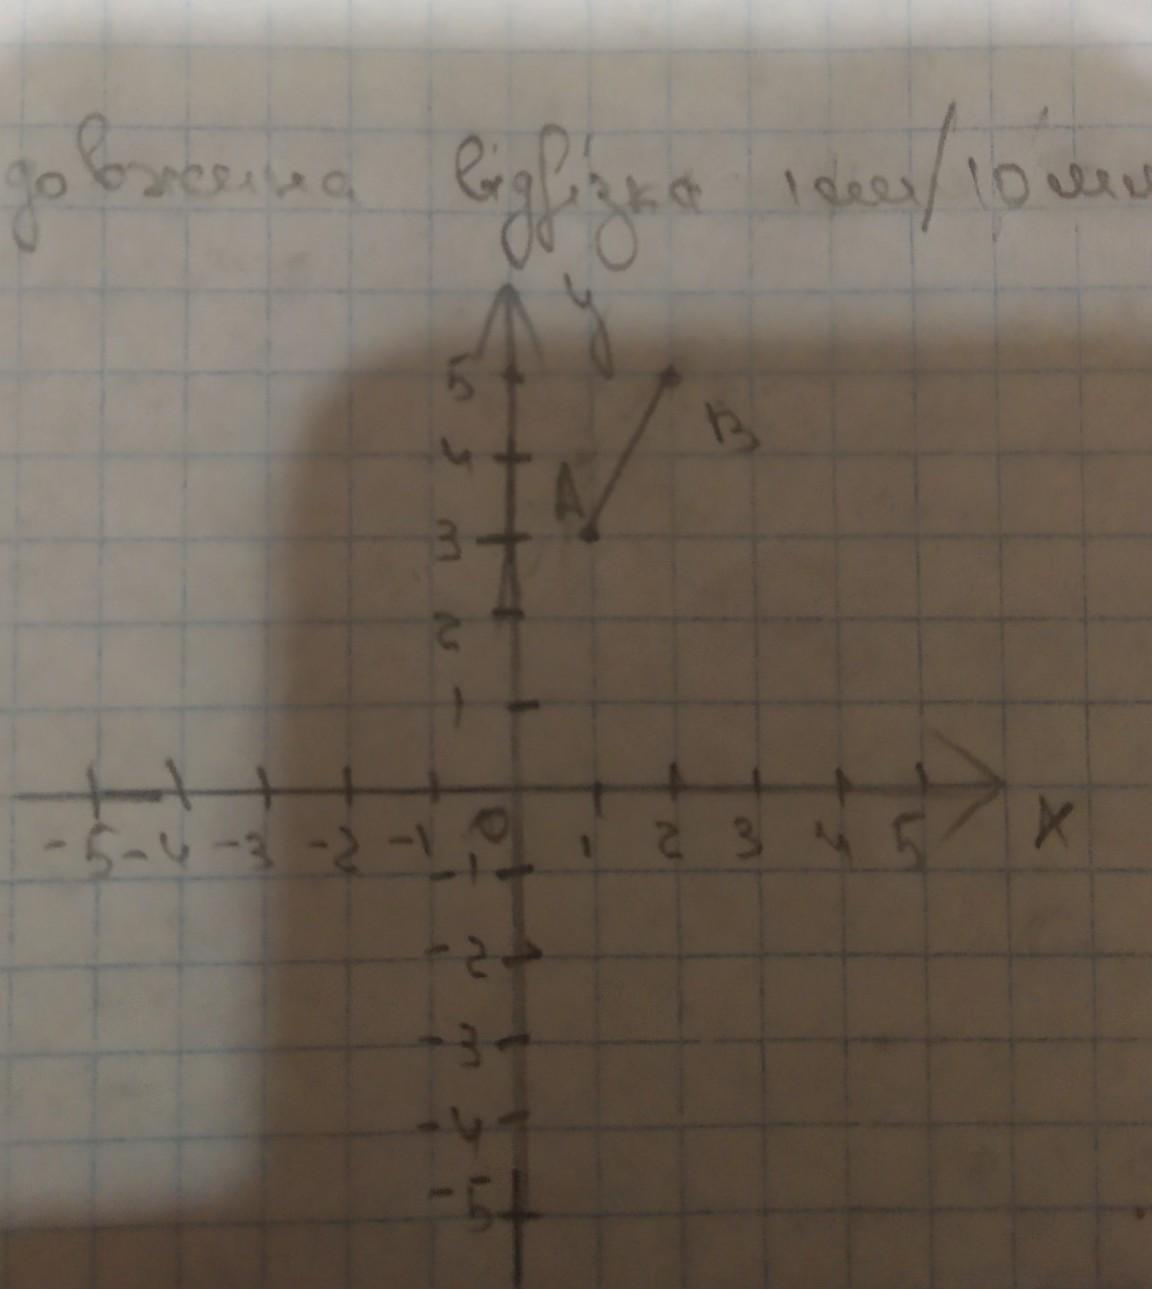 довжина відрізка 1см/10мм
y
5
B
4
A
3
2
1
-5 -4 -3 -2 -1 0 1 2 3 4 5 x
-1
-2
-3
-4
-5